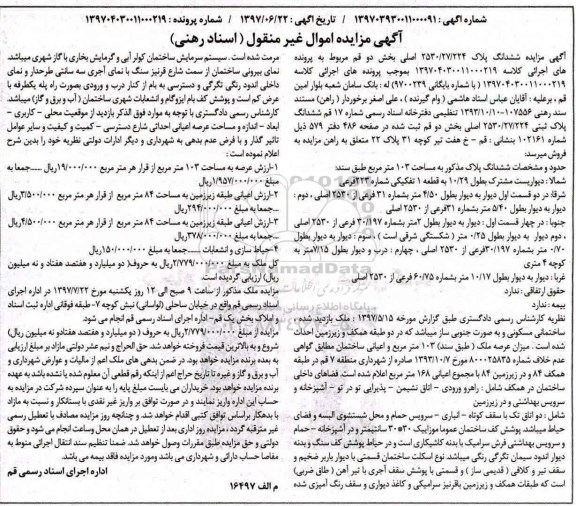 شماره آگهی : ۱۳۹۷۰۳۹۳۰۰۱۱۰۰۰۰۹۱ / تاریخ آگهی : ۱۳۹۷/۰۶/۲۲ / شماره پرونده : ۱۳۹۷۰۴۰۳۰۰۱۱۰۰۰۲۱۹
آگهی مزایده اموال غیر منقول ( اسناد رهنی )
آگهی مزایده ششدانگ پلاک ۲۵۳۰/۲۷/۲۲۴ اصلی بخش دو قم مربوط به پرونده
های اجرائی کلاسه ۱۳۹۷۰۴۰۳۰۰۱۱۰۰۰۲۱۹ بموجب پرونده های اجرائی کلاسه
۱۳۹۷۰۴۰۳۰۰۱۱۰۰۰۲۱۹ ( با شماره بایگانی ۹۷۰۰۲۳۹) له : بانک سامان شعبه بلوار امین
قم ، برعلیه : آقایان عباس اسناد هاشمی ( وام گیرنده ) ، علی اصغر برخوردار ( راهن) مستند
سند رهنی ۱۰۷۵۵۶-۱۳۹۳/۱۰/۱۰ تنظیمی دفترخانه اسناد رسمی شماره ۱۷ قم ششدانگ
پلاک ثبتی ۲۵۳۰/۲۷/۲۲۴ اصلی بخش دو قم ثبت شده در صفحه ۴۸۶ دفتر ۵۷۹ ذیل
شماره ۱۰۲۱۶۱ بنشانی : قم - خ هفت تیر کوچه ۳۱ پلاک ۲۲ متعلق به راهن مزایده به
فروش میرسد:
حدود و مشخصات ششدانگ پلاک مذکور به مساحت ۱۰۳ متر مربع طبق سند:
شمالا : دیواریست مشترک بطول ۱۰/۲۹ به قطعه ۱ تفکیکی شماره ۲۲۳فرعی
شرقا: در دو قسمت اول دیوار به دیوار بطول ۴/۵۰ متر بشماره ۳۱فرعی از ۲۵۳۰ اصلی ، دوم :
دیوار به دیوار بطول ۵/۴۰ متر بشماره ۳۱فرعی از ۲۵۳۰ اصلی
جنوبا : در چهار قسمت اول : دیوار به دیوار بطول ۲متر بشماره ۳۰/۱۹۷ فرعی از ۲۵۳۰ اصلی
، دوم دیوار به دیوار بطول ۰/۲۵ متر ( شکستگی شرقی است ) ، سوم : دیوار به دیوار بطول
۰/۷۰ متر بشماره ۳۰/۱۹۷فرعی از ۲۵۳۰ اصلی ، چهارم : درب و دیوار بطول ۷/۱۵متر به
کوچه ۴ متری
غربا : دیوار به دیوار بطول ۱۰/۱۷ متر بشماره ۶۰/۷۵ فرعی از ۲۵۳۰ اصلی
حقوق ارتفاقی : ندارد
بیمه : ندارد
نظریه کارشناس رسمی دادگستری طبق گزارش مورخه ۱۳۹۷/۵/۱۵ : ملک بازدید شده ،
ساختمانی مسکونی و به صورت جنوبی ساز میباشد که در دو طبقه همکف و زیرزمین احداث
شده است . میزان عرصه ملک ( طبق سند) ۱۰۳ متر مربع و اعیانی ساختمان مطابق گواهی
عدم خلاف شماره ۸۰۰۰۲۵۸۳۵ مورخ ۱۳۹۳/۱۰/۷ صادره از شهرداری منطقه ۷ قم در طبقه
همکف ۸۴ و در زیرزمین ۸۴ با مجموع اعیانی ۱۶۸ متر مربع اعلام شده است. فضاهای داخلی
ساختمان در همکف شامل : راهرو ورودی - اتاق نشیمن - پذیرایی تو در تو - آشپزخانه و
سرویس بهداشتی و در زیرزمین
شامل : دو اتاق تک با سقف کوتاه - انباری - سرویس حمام و محل شستشوی البسه و فضای
حیاط میباشد. پوشش کف ساختمان عموما موزاییک ۳۰*۳۰ سانتیمتر و در آشپزخانه - حمام
و سرویس بهداشتی فرش سرامیک با بدنه کاشیکاری است و در حیاط پوشش کف سنگ و بدنه
دیوار اندود سیمان تگرگی رنگی میباشد. نوع اسکلت ساختمان قسمتی با دیوار باربر ضخیم و
سقف تیر و کلافی ( قدیمی ساز ) و قسمتی با پوشش سقف آجری با تیر آهن ( طاق ضربی)
است که طبقات همکف و زیرزمین باقرنیز سرامیکی و کاغذ دیواری و سقف رنگ آمیزی شده
مرمت شده است . سیستم سرمایش ساختمان کولر آبی و گرمایش بخاری با گاز شهری میباشد.
نمای بیرونی ساختمان از سمت شارع قرنیز سنگ با نمای آجری سه سانتی طرحدار و نمای
داخلی اندود رنگی تگرگی و دسترسی به بام از کنار درب و ورودی بصورت راه پله یکطرفه با
عرض کم است و پوشش کف بام ایزوگام و انشعابات شهری ساختمان ( آب و برق و گاز) میباشد.
کارشناس رسمی دادگستری با توجه به موارد فوق الذکر بازدید از موقعیت محلی - کاربری -
ابعاد - اندازه و مساحت عرصه اعیانی احداثی شارع دسترسی - کمیت و کیفیت و سایر عوامل
تاثیر گذار و با فرض عدم بدهی به شهرداری و دیگر ادارات دولتی نظریه خود را بدین شرح
اعلام نموده است :
۱-ارزش عرصه به مساحت ۱۰۳ متر مربع از قرار هر متر مربع ۱۹/۰۰۰/۰۰۰ریال ..... جمعا به
مبلغ ۱/۹۵۷/۰۰۰/۰۰۰ریال
۲-ارزش اعیانی طبقه زیرزمین به مساحت ۸۴ متر مربع از قرار هر متر مربع ۳/۵۰۰/۰۰۰ریال
جمعا به مبلغ ۲۹۴/۰۰۰/۰۰۰ ریال
۳-ارزش اعیانی طبقه زیرزمین به مساحت ۸۴ متر مربع از قرار هر متر مربع ۴/۵۰۰/۰۰۰ریال
جمعا به مبلغ ۳۷۸/۰۰۰/۰۰۰ریال
۴-حیاط سازی و انشعابات ...... جمعا به مبلغ ۱۵۰/۰۰۰/۰۰۰ریال
کل ملک به مبلغ ۲/۷۷۹/۰۰۰/۰۰۰ریال به حروف( دو میلیارد و هفتصد هفتاد و نه میلیون
ریال) ارزیابی گردیده است.
مزایده ملک مذکور از ساعت ۹ صبح الی ۱۲ روز یکشنبه مورخ ۱۳۹۷/۷/۲۲ در اداره اجرای
اسناد رسمی قم واقع در خیابان ساحلی (لواسانی) نبش کوچه ۷- طبقه فوقانی اداره ثبت اسناد
و املاک بخش یک قم- اداره اجرای اسناد رسمی قم انجام می شود.
مزایده از مبلغ ۲/۷۷۹/۰۰۰/۰۰۰ریال به حروف ( دو میلیارد و هفتصد هفتادو نه میلیون ریال)
شروع و به بالاترین قیمت فروخته خواهد شد. حق الحراج و نیم عشر دولتی مازاد بر مبلغ ارزیابی
به عهده برنده مزایده خواهد بود. در ضمن بدهی های ملک اعم از مالیات و عوارض شهرداری و
آب و برق و گاز و غیره تا تاریخ حراج اعم از اینکه رقم قطعی آن معلوم شده یا نشده باشد به عهده
برنده مزایده خواهد بود. خریداران می بایست مبلغ پایه را به عنوان سپرده شرکت در مزایده به
حساب این اداره واریز نمایند و در صورت توافق بر واریز غیر نقدی با بستانکار و نسبت به مازاد
با بدهکار براساس توافق کتبی اقدام خواهد شد. و چنانچه روز مزایده مصادف با تعطیل رسمی
غیر مترقبه گردد ، مزایده روز اداری بعد از تعطیل در همان محل وساعت انجام می شود و حقوق
دولتی و حق مزایده طبق مقررات وصول خواهد شد. ضمنا تنظیم سند انتقال اجرائی منوط به
مفاصا حساب دارائی و شهرداری می باشد ومورد مزایده فاقد بیمه می باشد.
اداره اجرای اسناد رسمی قم
م الف ۱۶۴۹۷